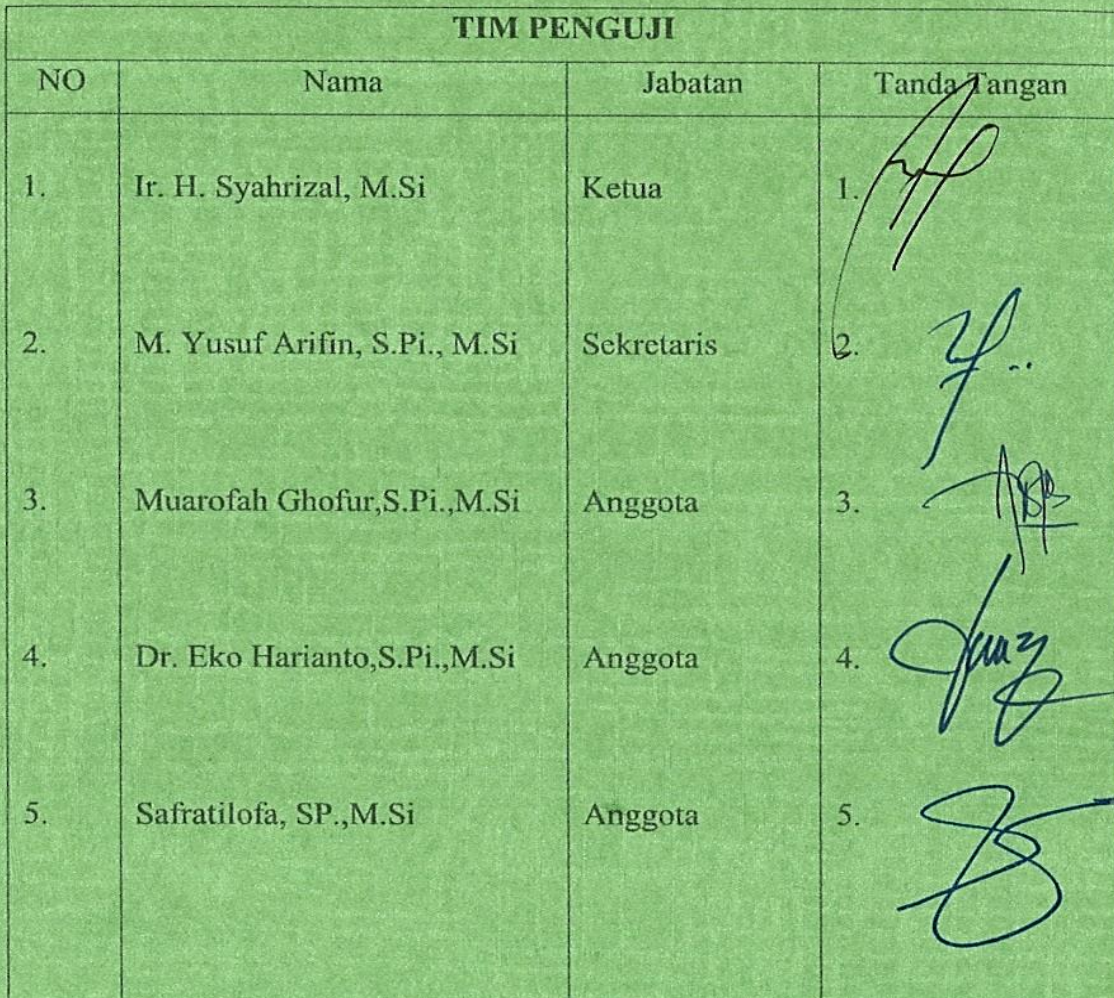 TIM PENGUJI
NO Nama Jabatan Tanda Tangan
1. Ir. H. Syahrizal, M.Si Ketua 1.
2. M. Yusuf Arifin, S.Pi., M.Si Sekretaris 2.
3. Muarofah Ghofur,S.Pi.,M.Si Anggota 3.
4. Dr. Eko Harianto,S.Pi.,M.Si Anggota 4.
5. Safratilofa, SP.,M.Si Anggota 5.